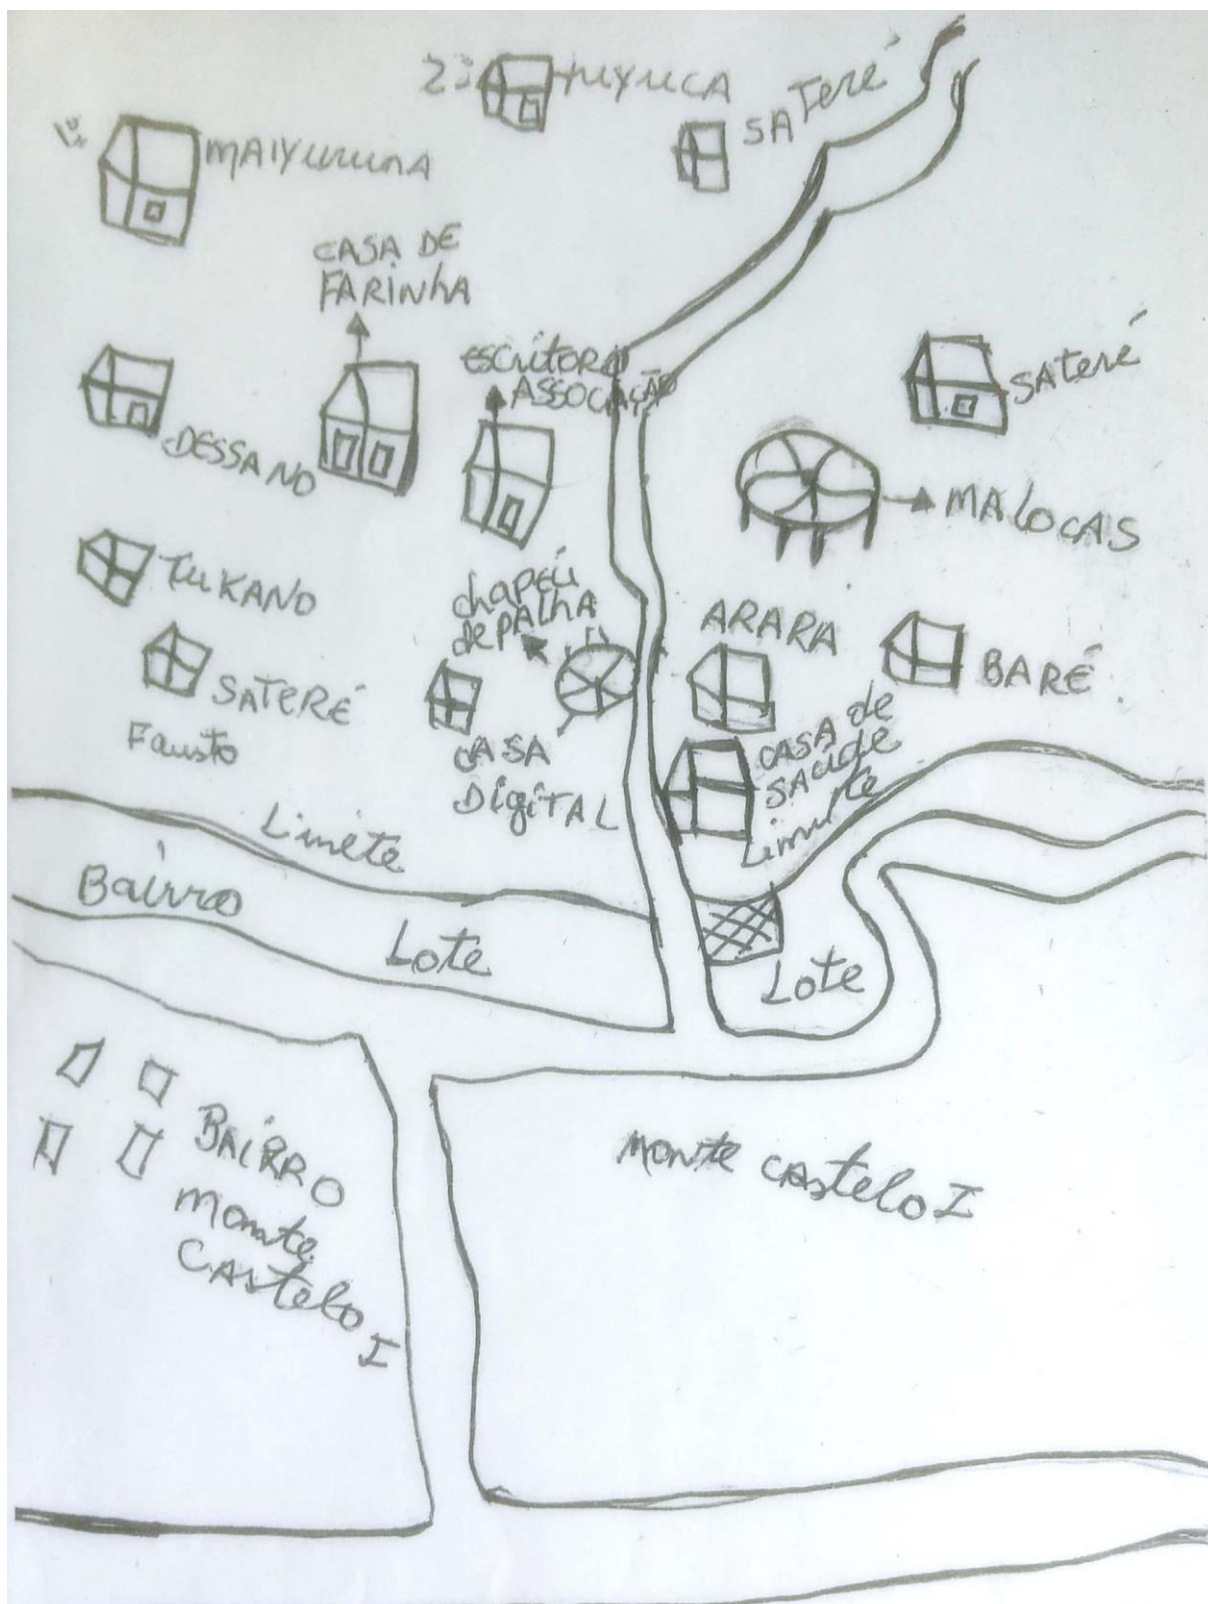 2ª TUYUCA
SATERÉ
1ª MAIYURUNA
CASA DE
FARINHA
ESCRITORO
ASSOCIAÇÃO
SATERÉ
DESSANO
MALOCAS
TUKANO
chapéu
de PALHA
ARARA
BARÉ
SATERÉ
Fausto
CASA
DigiTAL
CASA de
SAÚDE
Limite
Limete
Bairro
Lote
Lote
BAIRRO
Monte
CAStelo
I
Monte CAStelo I